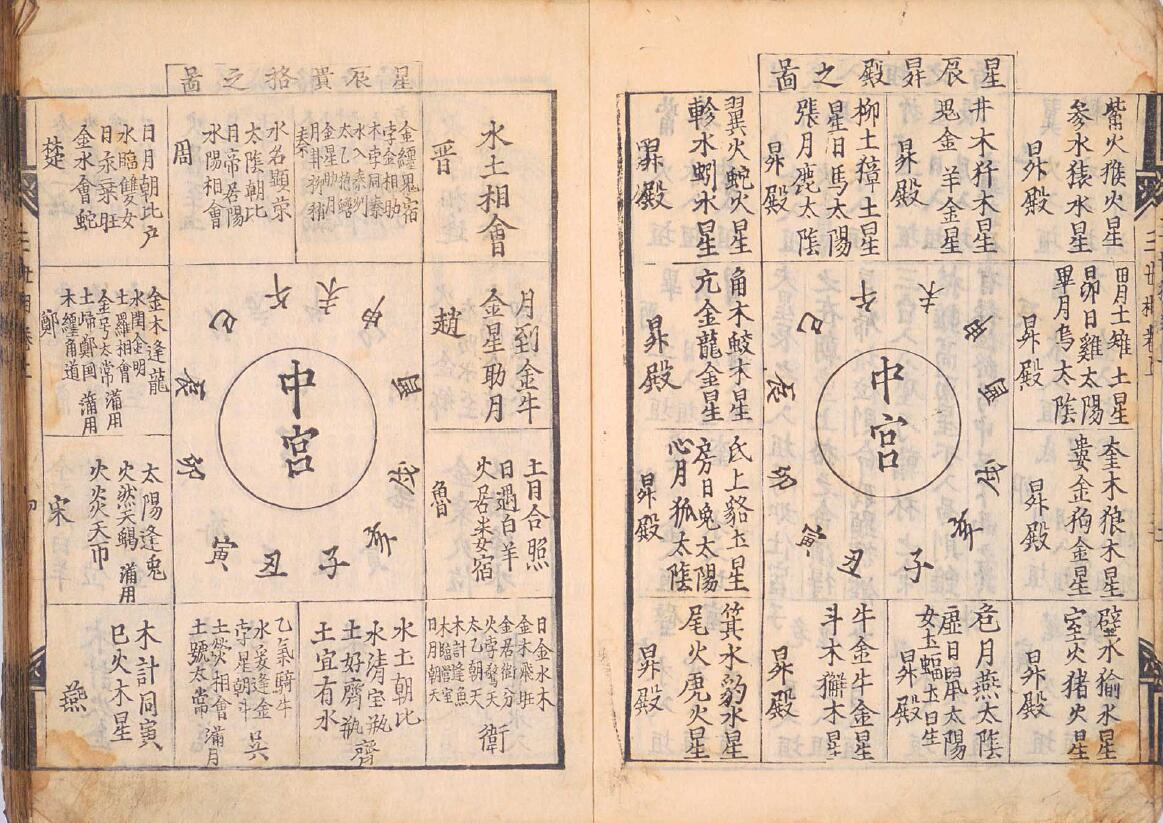 星辰昇殿之圖
觜火猴火星
參水猿水星
昇殿
井木犴木星
鬼金羊金星
昇殿
柳土獐土星
星日馬太陽
張月鹿太陰
昇殿
翼火蛇火星
軫水蚓水星
昇殿
胃土雉土星
昴日雞太陽
畢月烏太陰
昇殿
角木蛟木星
亢金龍金星
昇殿
奎木狼木星
婁金狗金星
昇殿
氐土貉土星
房日兔太陽
心月狐太陰
昇殿
壁水㺄水星
室火猪火星
昇殿
危月燕太陰
虛日鼠太陽
女土蝠土日生
昇殿
牛金牛金星
斗木獬木星
昇殿
箕水豹水星
尾火虎火星
昇殿
中宮
子
丑
寅
卯
辰
巳
午
未
申
酉
戌
亥
三世相卷上
星辰貴格之圖
水土相會
晋
金纏鬼宿
孛金相助
木孛同秦
水入秦州
太乙抱蟾
金星助月
秦
水名顯榮
太陰朝比
日帝居陽
水陽相會
周
日月朝比戶
水臨雙女
日乘旺
金水會蛇
楚
月到金牛
金星助月
趙
金木逢龍
水潤金明
土羅相會
土歸鄭國
木纏角道
鄭
土月合照
日遇白羊
火居娄宿
魯
太陽逢兎
火炎天
宋
日金水木
金木飛旺
金居衛分
太乙朝天
木計逢魚
日月朝天
衛
水土朝比
水清宝瓶
土好齊瓶
土宜有水
齊
乙氣騎牛
孛星朝斗
土熒相會
土號太常
吳
木計同寅
巳火木星
燕
中宮
子
丑
寅
卯
辰
巳
午
未
申
酉
戌
亥